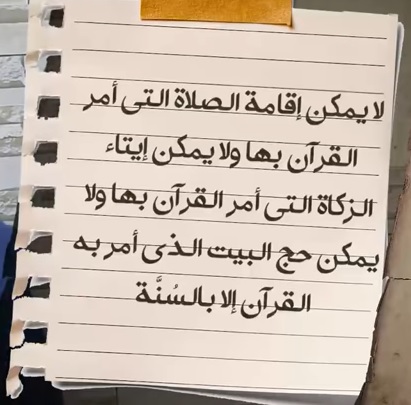 لا يمكن إقامة الصلاة التى أمر
القرآن بها ولا يمكن إيتاء
الزكاة التى أمر القرآن بها ولا
يمكن حج البيت الذى أمر به
القرآن إلا بالسُنَّة